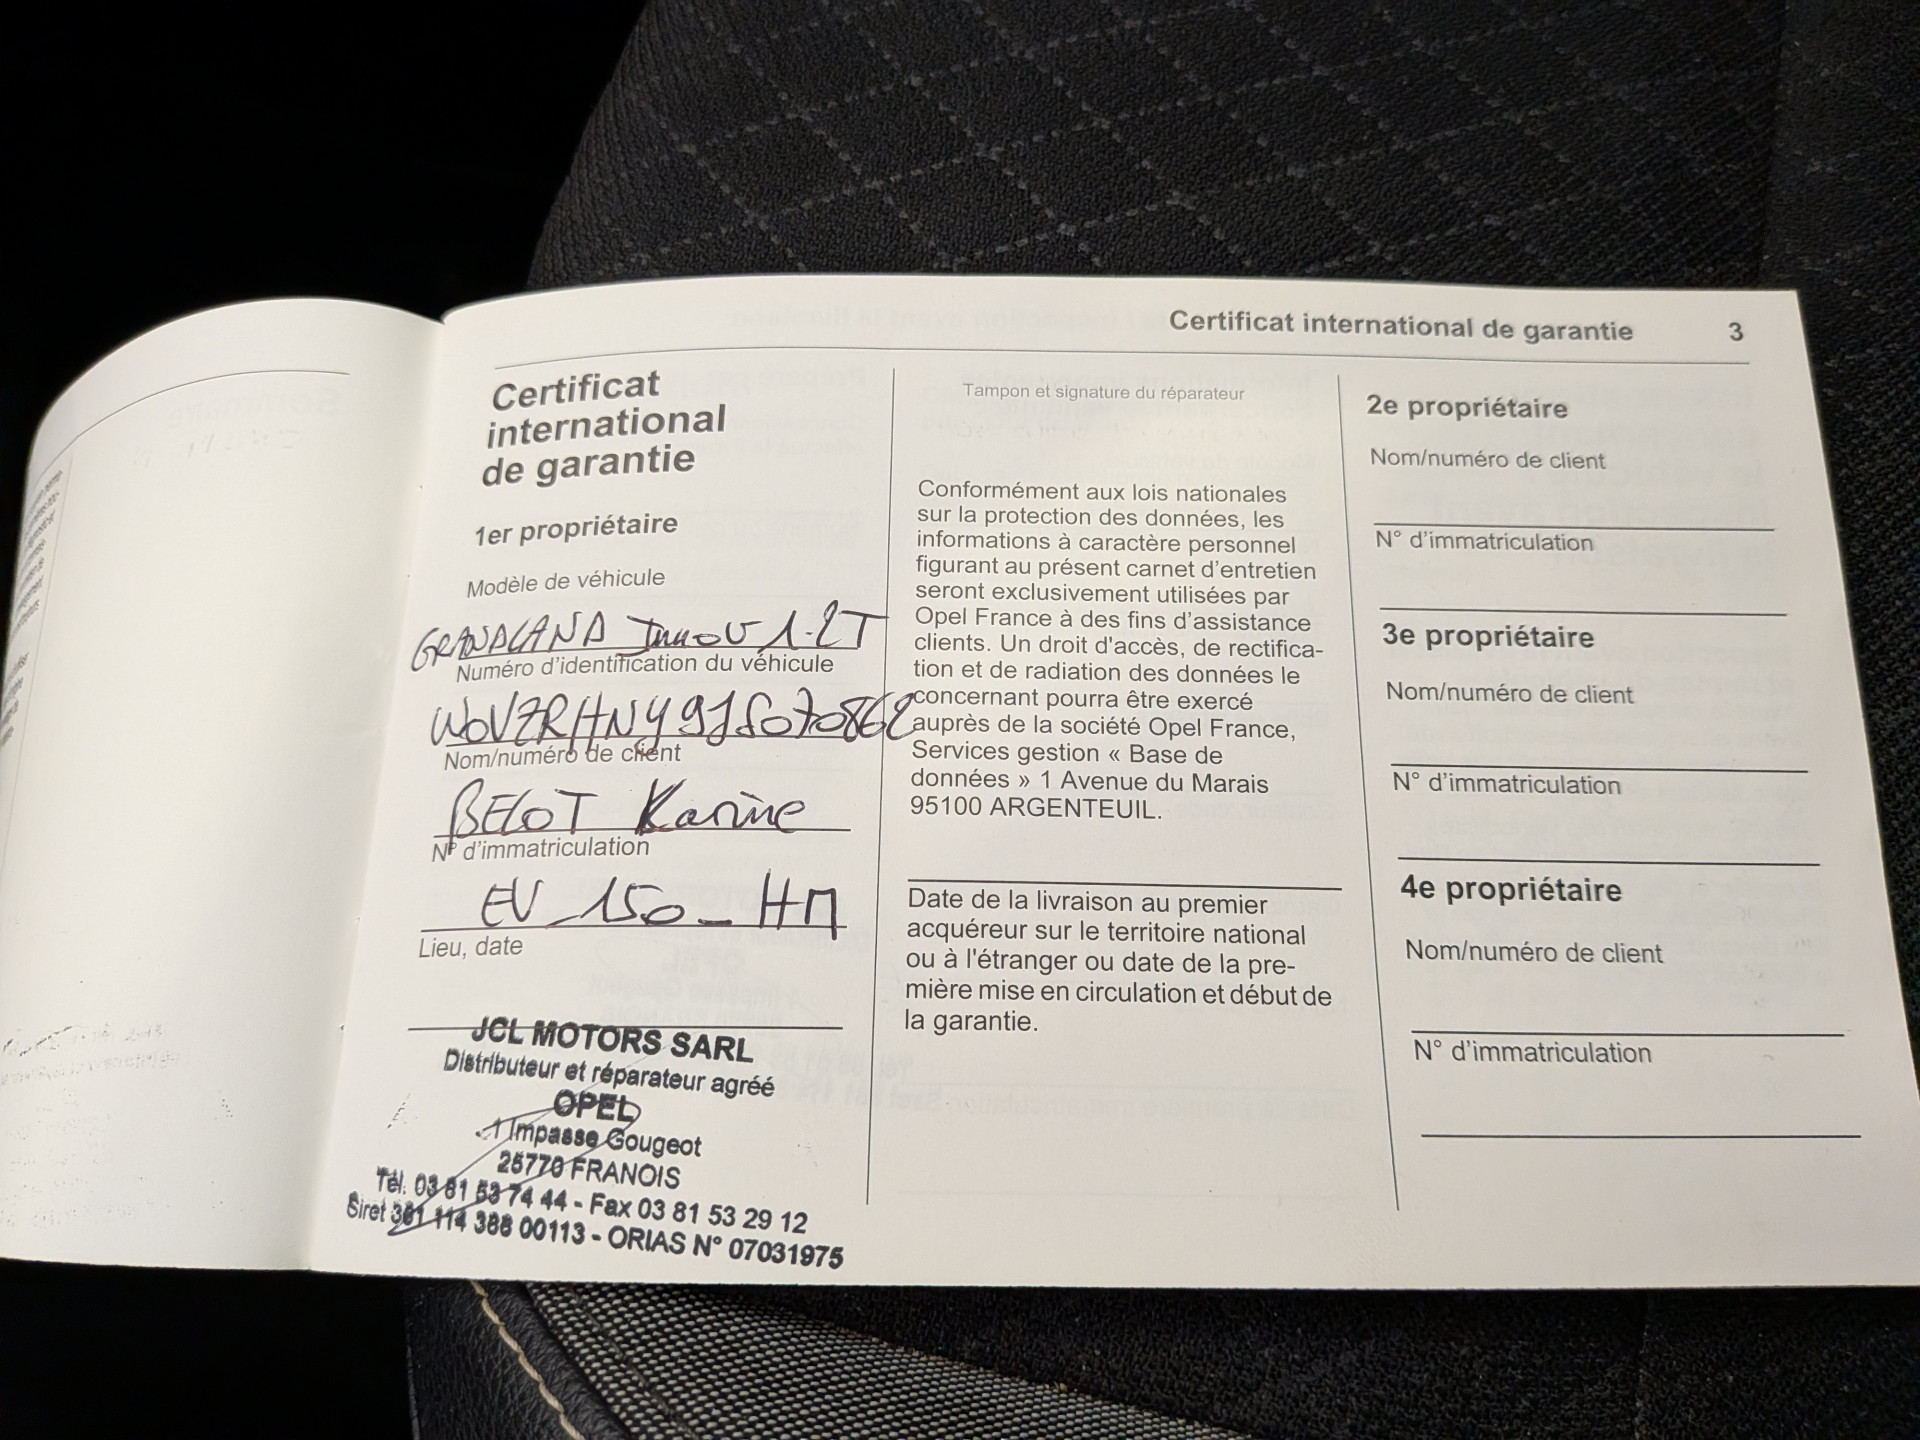 Certificat international de garantie 3
Certificat
international
de garantie
1er propriétaire
Modèle de véhicule
GRANDLAND Innov 1.2T
Numéro d'identification du véhicule
W0VZRHNY9JS070862
Nom/numéro de client
BELOT Karine
N° d'immatriculation
EV_150_HM
Lieu, date
JCL MOTORS SARL
Distributeur et réparateur agréé
OPEL
1 Impasse Gougeot
25770 FRANOIS
Tél. 03 81 53 74 44 - Fax 03 81 53 29 12
Siret 381 114 388 00113 - ORIAS N° 07031975
Tampon et signature du réparateur
Conformément aux lois nationales
sur la protection des données, les
informations à caractère personnel
figurant au présent carnet d'entretien
seront exclusivement utilisées par
Opel France à des fins d'assistance
clients. Un droit d'accès, de rectifica-
tion et de radiation des données le
concernant pourra être exercé
auprès de la société Opel France,
Services gestion « Base de
données » 1 Avenue du Marais
95100 ARGENTEUIL.
Date de la livraison au premier
acquéreur sur le territoire national
ou à l'étranger ou date de la pre-
mière mise en circulation et début de
la garantie.
2e propriétaire
Nom/numéro de client
N° d'immatriculation
3e propriétaire
Nom/numéro de client
N° d'immatriculation
4e propriétaire
Nom/numéro de client
N° d'immatriculation